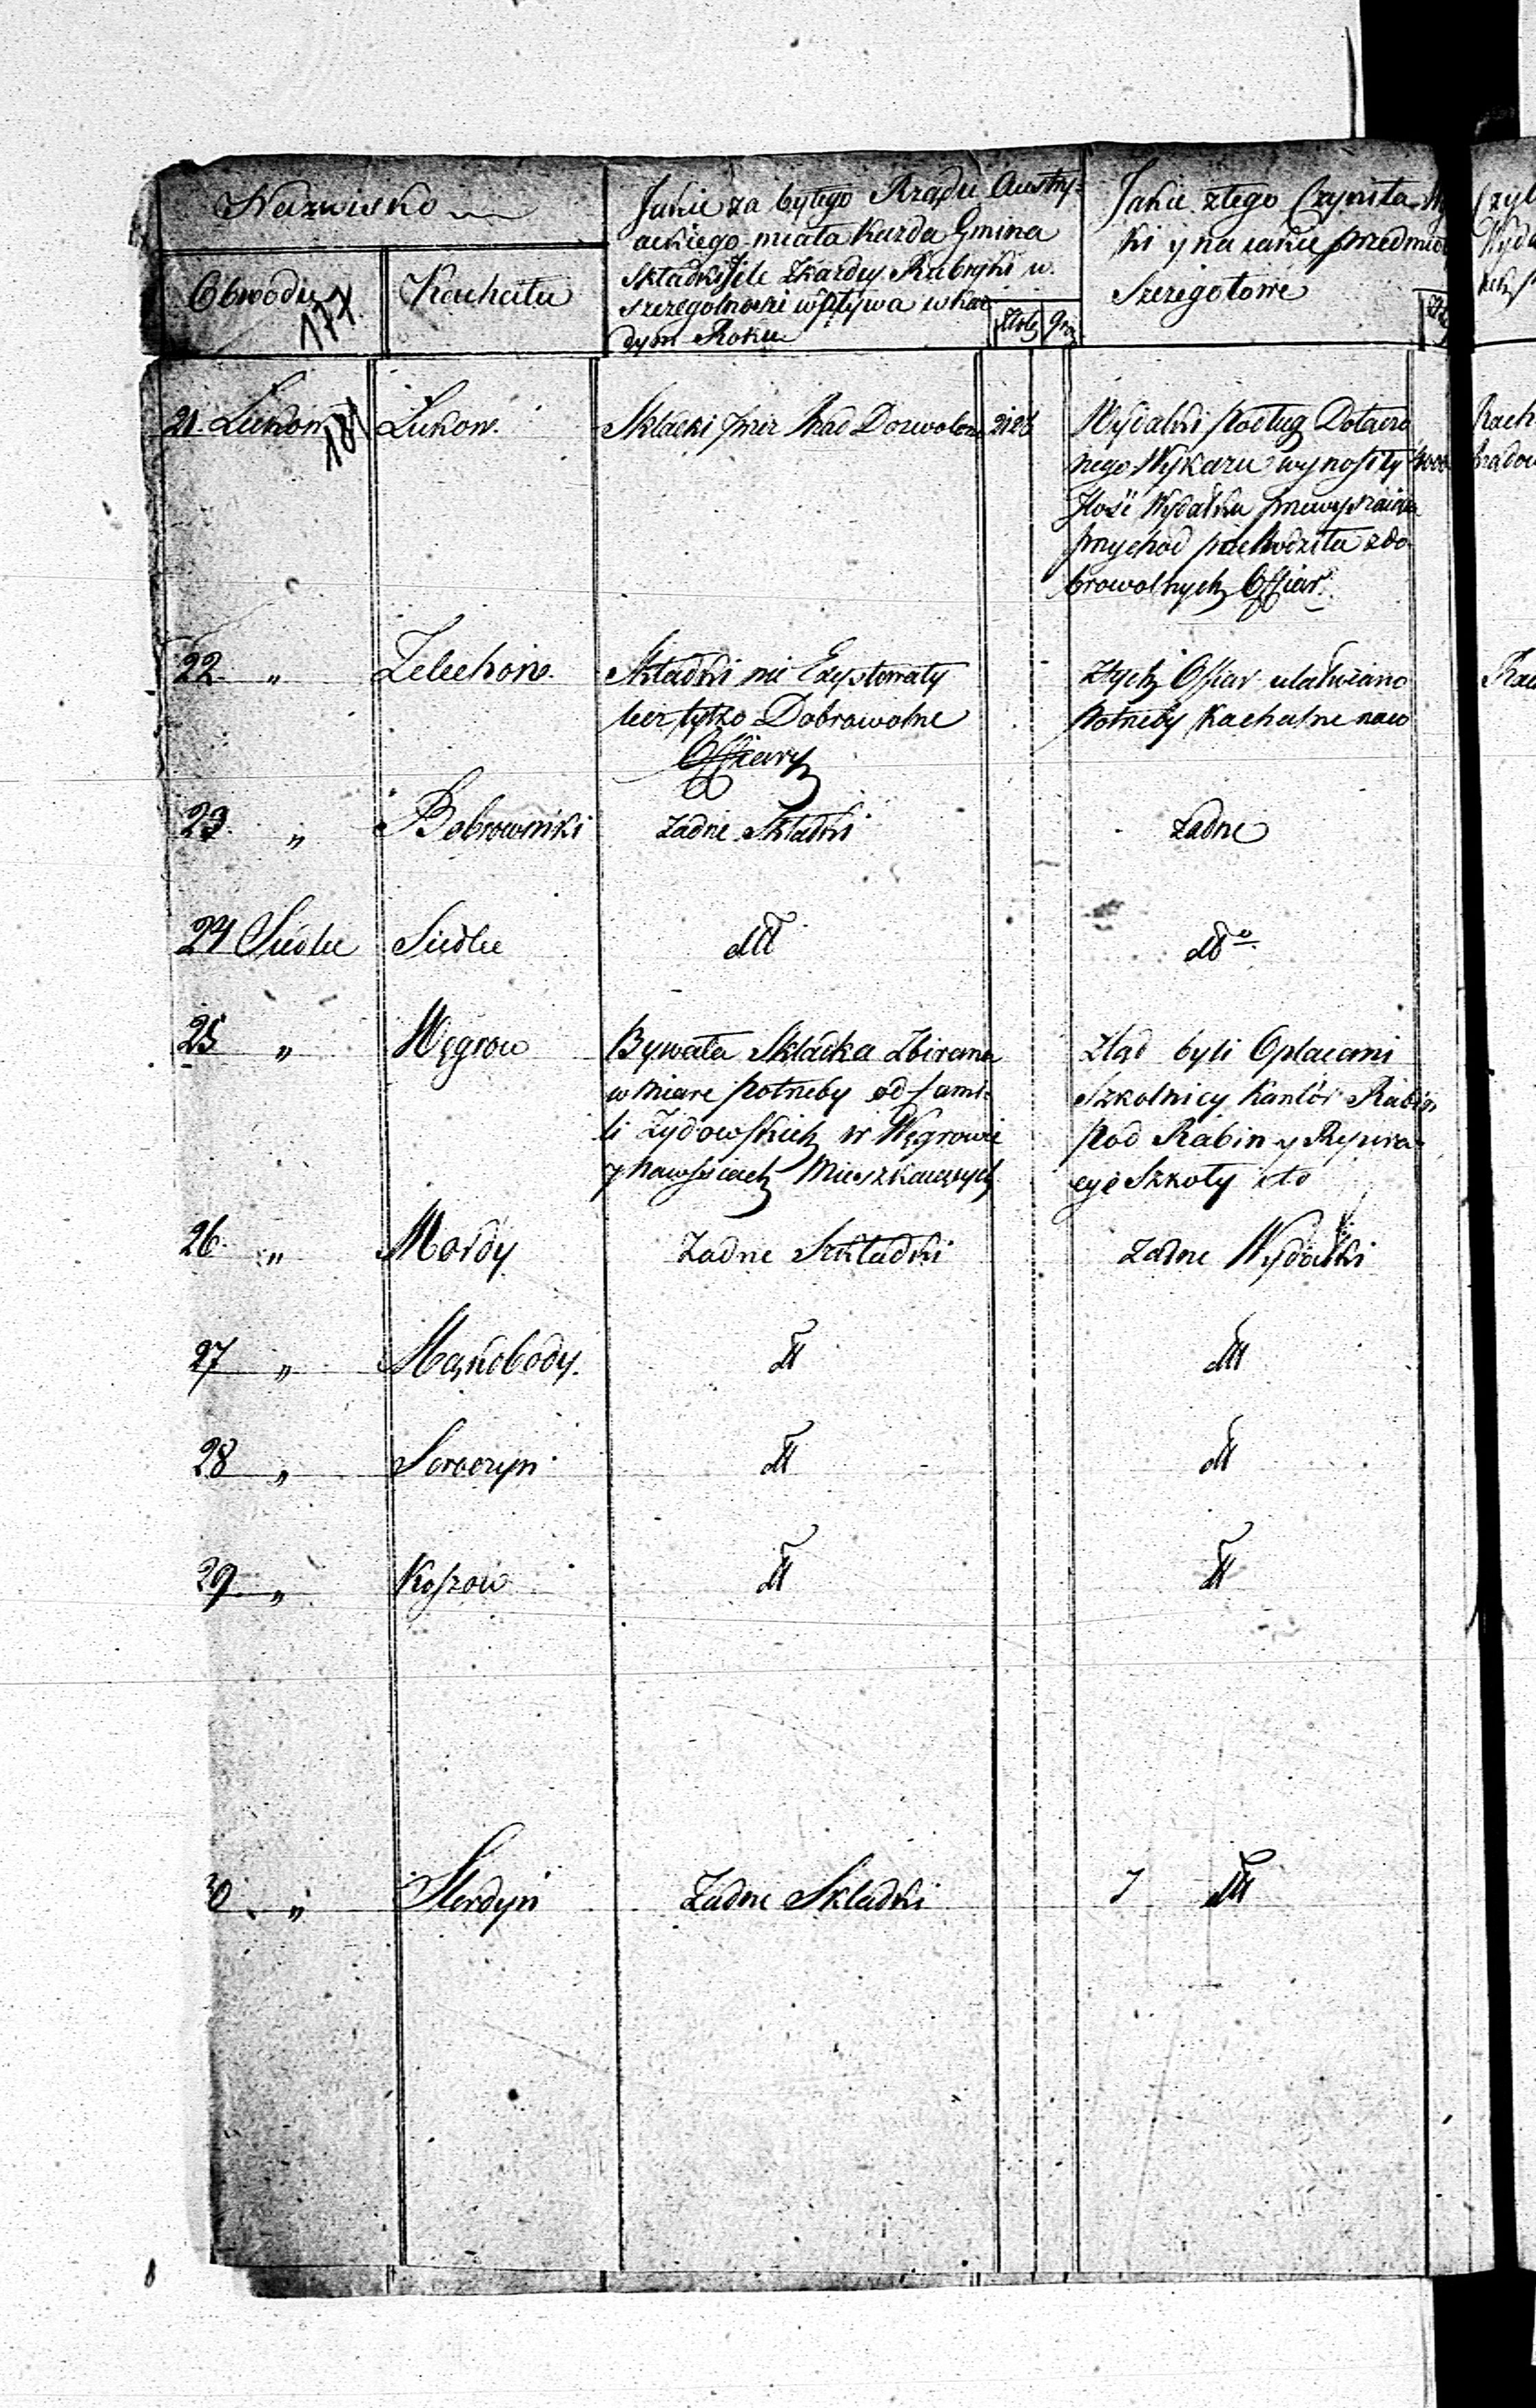 Nazwisko
Obwodu
Kachału
177
Jakie za byłego Rządu Austry-
ackiego miała Każda Gmina
Składki Ile z każdey Rubryki w
szczegolnosci wpływa w każ
dym Roku
Złote
gro
Jakie z tego Czyniła
ki y na iakie przedmio
Szczegołowe
21. Łukow
181
Łukow.
Składki przez Rząd Dozwolone
2128
Wydatki podług Dołączo
nego Wykazu wynosiły
4000
Ilość Wydatku przewyszaiąca
przychod pochodziła z do
browolnych Offiar.
22 „
Zelechow.
Składki nie Exystowały
lecz tylko Dobrowolne
Offiary
Z tych Offiar ułatwiano
Potrzeby Kachalne
23 „
Bobrowniki
żadne Składki
żadne
24 Siedlce
Siedlce
dtt
dto
25 „
Węgrow
Bywała Składka Zbirana
w miarę potrzeby od fami-
li Zydowskich w Węgrowie
y na wsiach Mieszkaiących
Ztąd byli Opłacani
Szkolnicy Kantor Rabin
Pod Rabin y Repera-
cye Szkoły etc
26 „
Mordy
Zadne Szkładki
Zadne Wydatki
27 „
Mąkobody.
dtt
dtt
28 „
Seroczyn
dtt
dtt
29 „
Koszow
dtt
dtt
30 „
Sterdyn
Zadne Składki
dtt